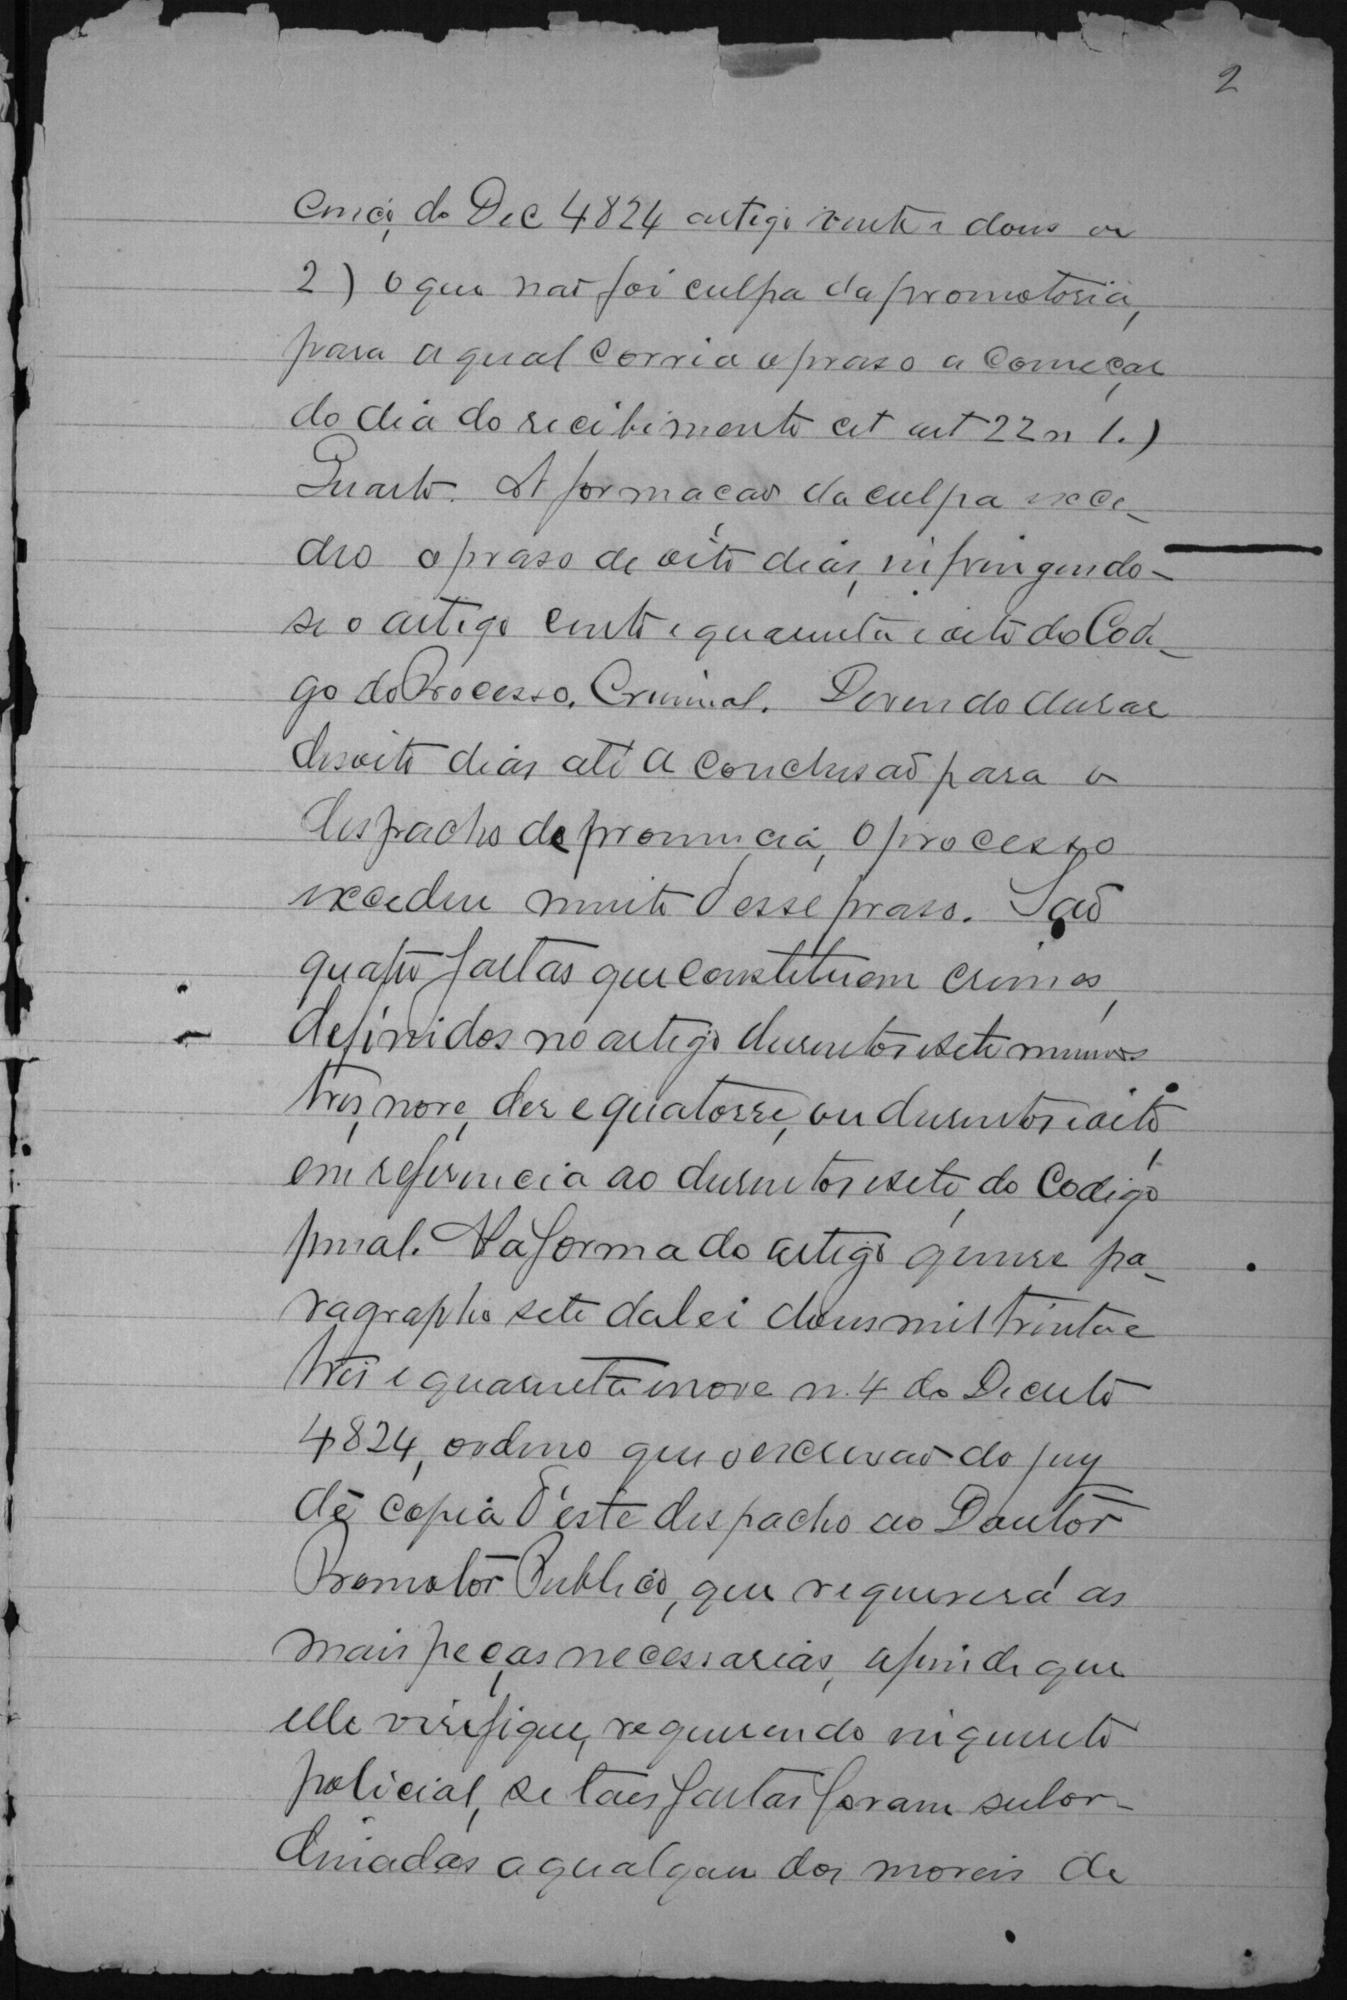 2
cinco, do Dec 4824 artigo vinte e dous os
2) o que naõ foi culpa da promotoria,
para a qual corria o praso a começar
do dia do recibimento cit art 22 n 1.)
Quarto. A formacaõ da culpa exce-
deo o praso de oito dias, infringendo-
se o artigo cento e quarenta e oito do Codi-
go do Processo, Criminal. Devendo durar
desoito dias até a conclusaõ para o
despacho de pronuncia, o processo
excedeu muito d'esse praso. Saõ
quatro faltas que constituem crimes,
definidos no artigo dusentos e sete numeros
tres, nove, des e quatorse, ou dusentos e oito
em referencia ao dusentos e sete, do Codigo
penal. Na forma do artigo quinse pa-
ragrapho sete da lei dous mil trinta e
tres e quarenta e nove n. 4 do Decreto
4824, ordeno que o escrivaõ do jury
dê copia d'este despacho ao Doutor
Promotor Publico, que requererá as
mais peças necessarias, afim de que
elle verifique, requerendo inquerito
policial, se taes faltas foram subor-
dinadas a qualquer dos moveis de